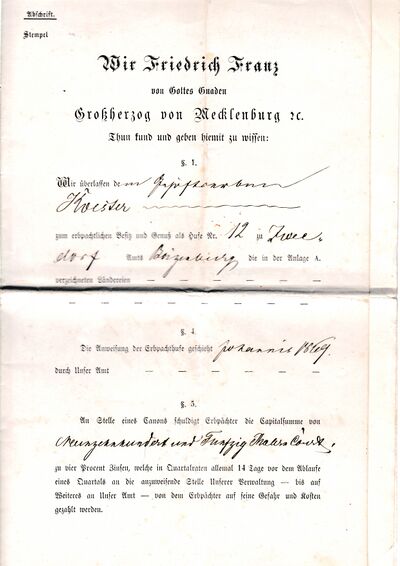 Abschrift.
Stempel
Wir Friedrich Franz
von Gottes Gnaden
Großherzog von Mecklenburg ꝛc.
Thun kund und geben hiemit zu wissen:
§. 1.
Wir überlassen dem
Koester
zum erbpachtlichen Besitz und Genuß als Hufe Nr. 12 zu Zwee-
dorf Amts Boizenburg die in der Anlage A.
verzeichneten Ländereien — — — — — —
— — — — — — — — — —
§. 4.
Die Anweisung der Erbpachthufe geschieht Johannis 1869.
durch Unser Amt — — — — — —
§. 5.
An Stelle eines Canons schuldigt Erbpächter die Capitalsumme von
Neunzehnhundert und Fünfzig Thalern Cour.
zu vier Procent Zinsen, welche in Quartalraten allemal 14 Tage vor dem Ablaufe
eines Quartals an die anzuweisende Stelle Unserer Verwaltung — bis auf
Weiteres an Unser Amt — von dem Erbpächter auf seine Gefahr und Kosten
gezahlt werden.